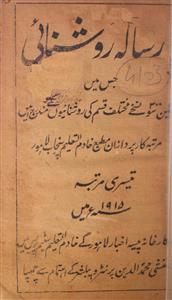 رسالہ روشنائی
جس میں
تین سو نسخے مختلف قسم کی روشنائیوں کے مندرج ہیں
مرتبہ کارپردازان مطبع خادم التعلیم پنجاب لاہور
تیسری مرتبہ
۱۹۱۵
سنہ ء میں
کارخانہ پیسہ اخبار لاہور کے خادم التعلیم سٹیم پریس میں
منشی محمد الدین پرنٹر و پبلشر کے اہتمام سے چھپا